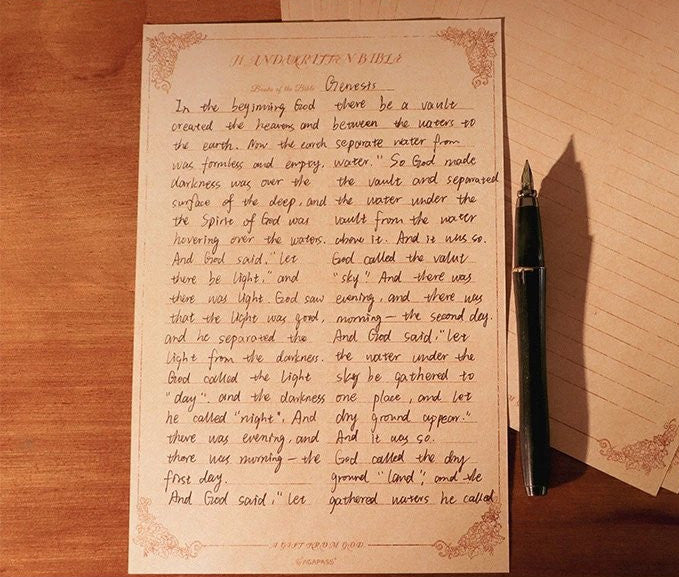 HANDWRITTEN BIBLE
Books of the Bible Genesis
In the beginning God
created the heavens and
the earth. Now the earth
was formless and empty,
darkness was over the
surface of the deep, and
the Spirit of God was
hovering over the waters.
And God said, "let
there be light," and
there was light. God saw
that the light was good,
and he separated the
light from the darkness.
God called the light
"day". and the darkness
he called "night". And
there was evening, and
there was morning — the
first day.
And God said, "let
there be a vault
between the waters to
separate water from
water." So God made
the vault and separated
the water under the
vault from the water
above it. And it was so.
God called the valut
"sky." And there was
evening, and there was
morning — the second day.
And God said, "let
the water under the
sky be gathered to
one place, and let
dry ground appear."
And it was so.
God called the dry
ground "land", and the
gathered waters he called
A GIFT FROM GOD
AGAPASS